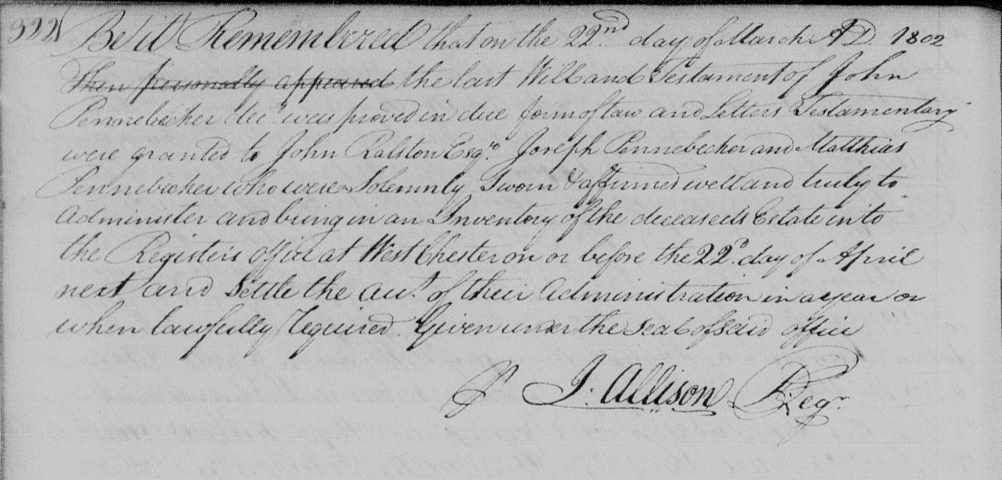 322 Be it Remembered that on the 22nd day of March AD. 1802
then personally appeared the last Will and Testament of John
Pennebecker decd was proved in due form of law and Letters Testamentary
were granted to John Ralston Esqr Joseph Pennebecker and Matthias
Pennebecker who were Solemnly Sworn & affirmed well and truly to
administer and bring in an Inventory of the deceaseds Estate into
the Registers office at West Chester on or before the 22d day of April
next and Settle the acct. of their administration in a year or
when lawfully required. Given under the seal of said office
J. Allison Regr.